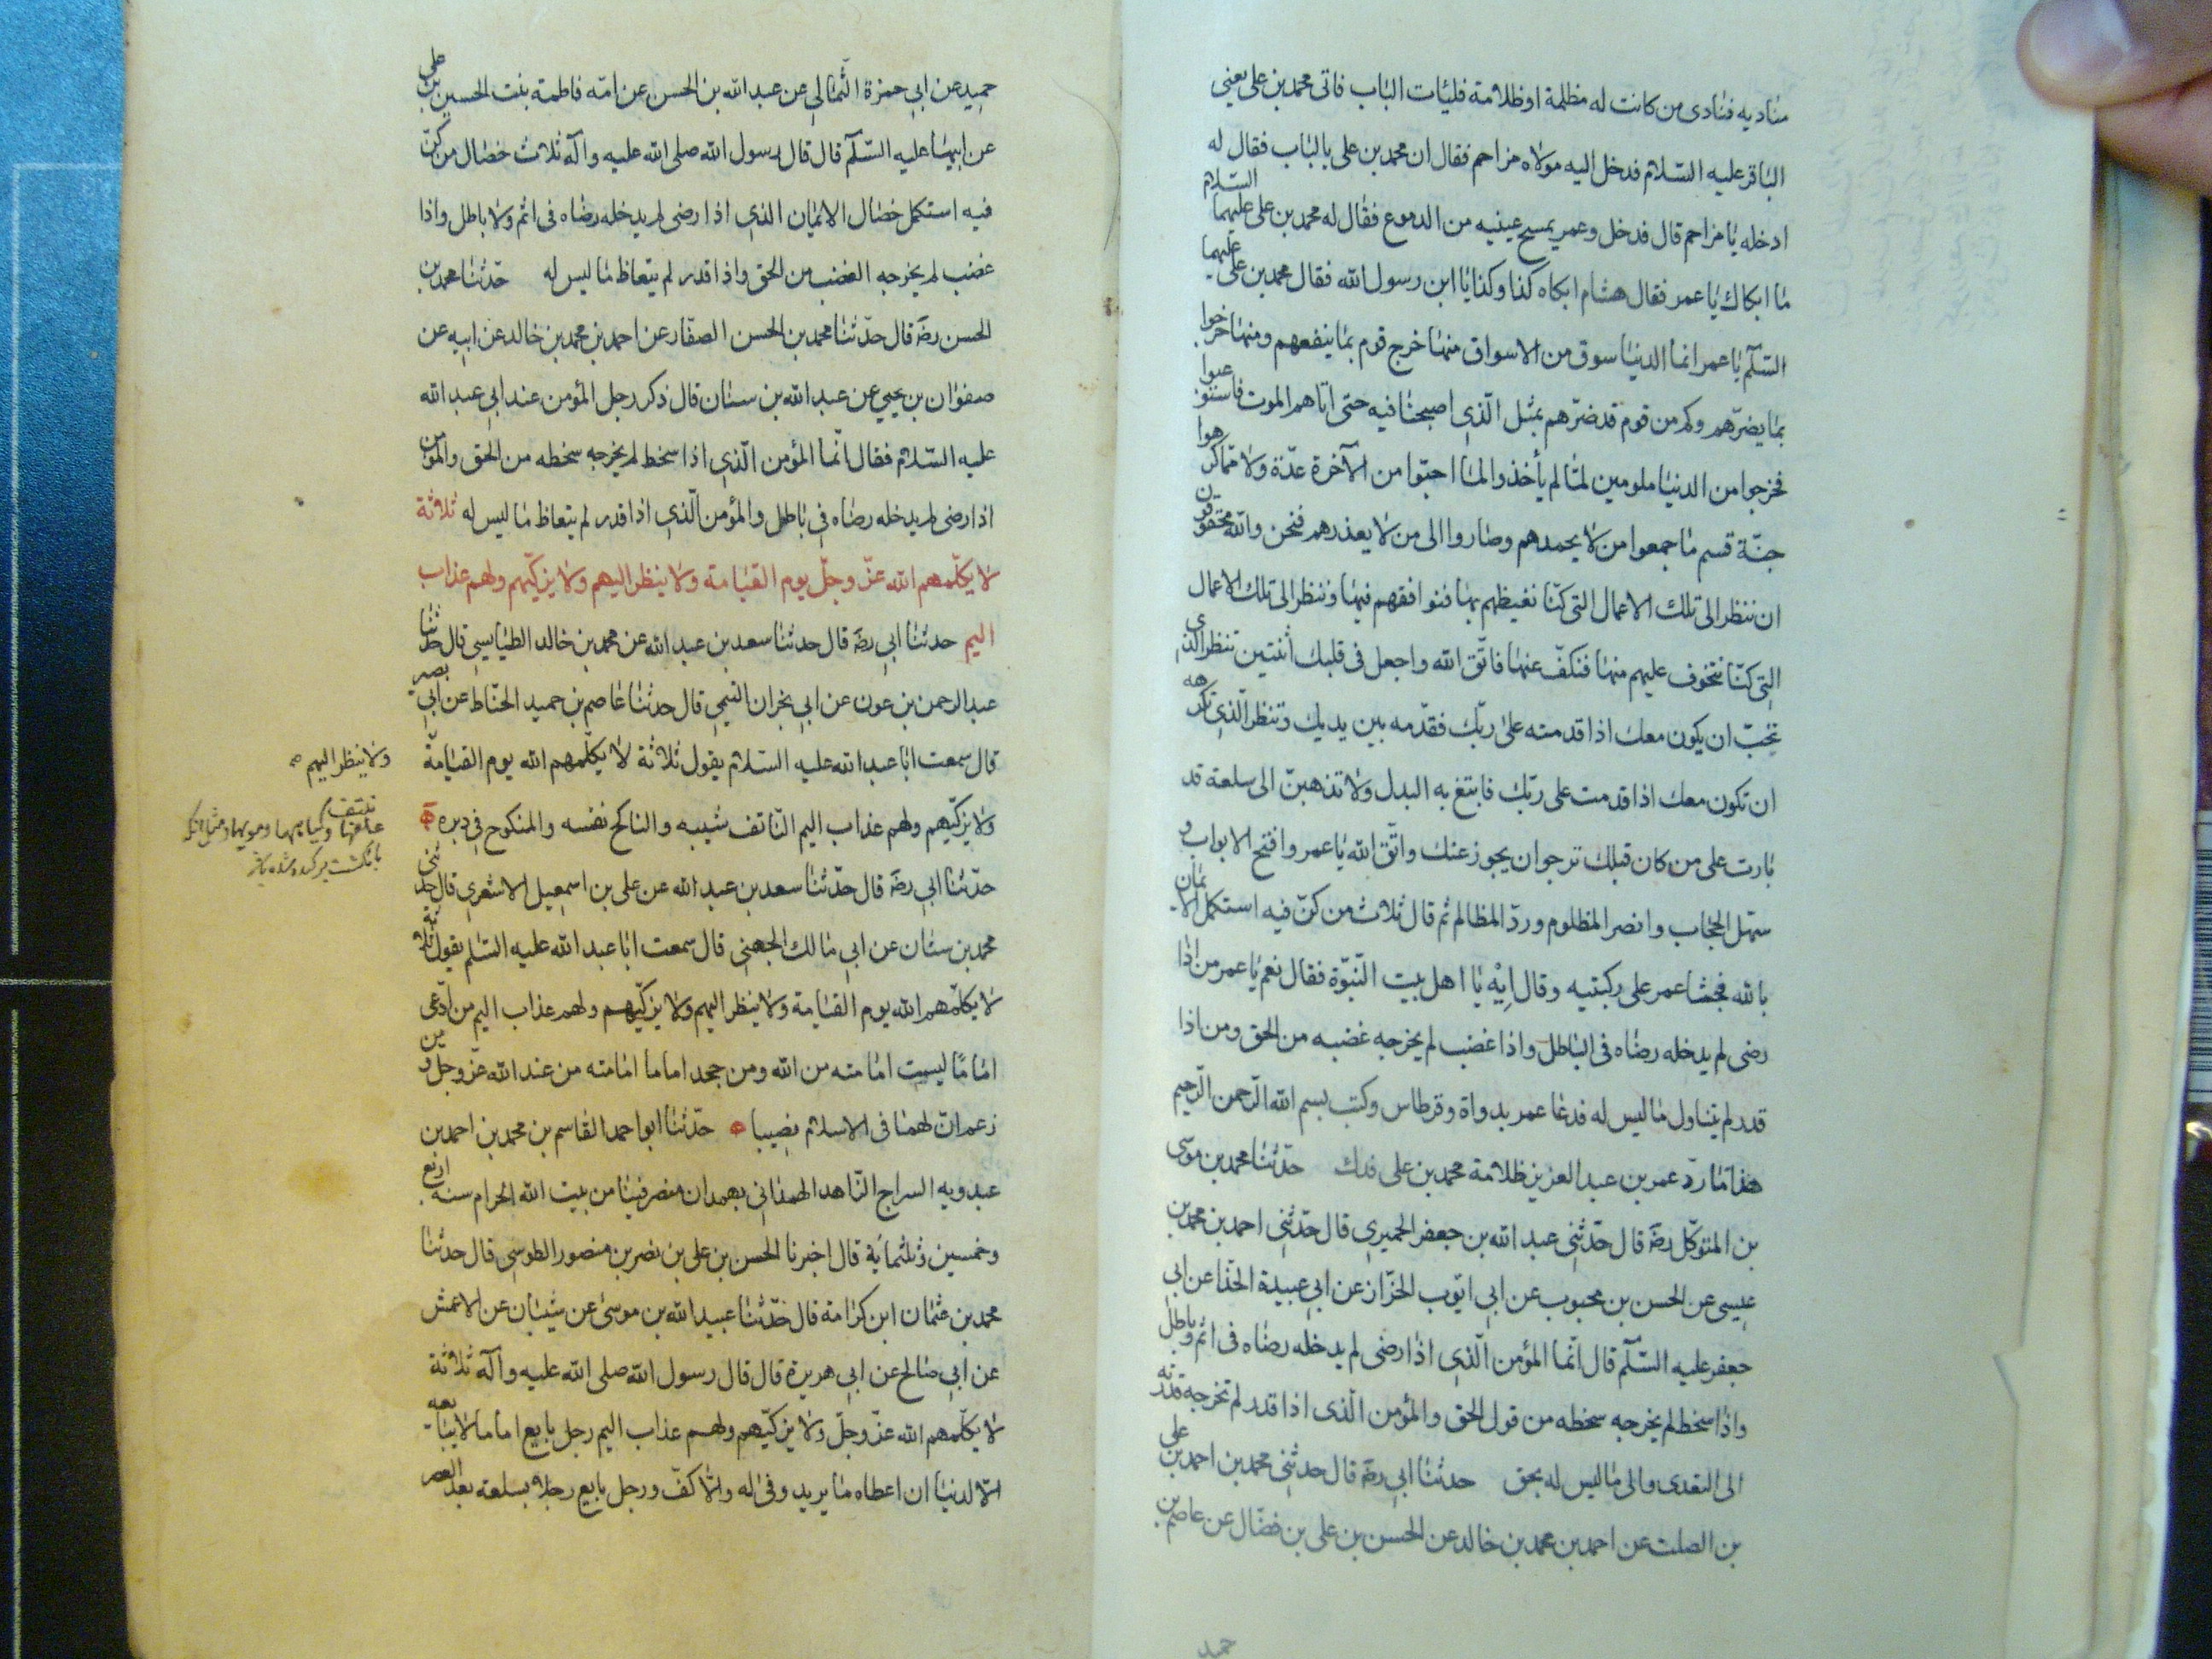 مناديه فنادى من كانت له مظلمة او ظلامة فليات الباب فاتى محمد بن على يعنى
الباقر عليه السلام فدخل اليه مولاه مزاحم فقال ان محمد بن على بالباب فقال له
ادخله يا مزاحم قال فدخل وعمر يمسح عينيه من الدموع فقال له محمد بن على عليهما السلام
ما ابكاك يا عمر فقال هشام ابكاه كذا وكذا يا ابن رسول الله فقال محمد بن على عليهما
السلم يا عمر انما الدنيا سوق من الاسواق منها خرج قوم بما ينفعهم ومنها خرجوا
بما يضرهم وكم من قوم قد ضرهم بمثل الذى اصبحنا فيه حتى اتاهم الموت فاستوعبوا
فخرجوا من الدنيا ملومين لما لم يأخذوا لما احبوا من الآخرة عدة ولا مما كرهوا
جنة قسم ما جمعوا من لا يحمدهم وصاروا الى من لا يعذرهم فنحن والله محقوقون
ان ننظر الى تلك الاعمال التى كنا نغبطهم بها فنوافقهم فيها وننظر الى تلك الاعمال
التى كنا نتخوف عليهم منها فنكف عنها فاتق الله واجعل فى قلبك اثنتين تنظر الذى
تحب ان يكون معك اذا قدمته على ربك فقدمه بين يديك وتنظر الذى تكرهه
ان تكون معك اذا قدمت على ربك فابتغ به البدل ولا تذهبن الى سلعة قد
بارت على من كان قبلك ترجو ان يجوز عنك واتق الله يا عمر وافتح الابواب و
سهل الحجاب وانصر المظلوم ورد المظالم ثم قال ثلاث من كن فيه استكمل الايمان
بالله فجثا عمر على ركبتيه وقال ايه يا اهل بيت النبوة فقال نعم يا عمر من اذا
رضى لم يدخله رضاه فى الباطل واذا غضب لم يخرجه غضبه من الحق ومن اذا
قدر لم يتناول ما ليس له فدعا عمر بدواة وقرطاس وكتب بسم الله الرحمن الرحيم
هذا ما رد عمر بن عبد العزيز ظلامة محمد بن على فدك حدثنا محمد بن موسى
بن المتوكل رضه قال حدثنى عبد الله بن جعفر الحميرى قال حدثنى احمد بن محمد بن
عيسى عن الحسن بن محبوب عن ابى ايوب الخزاز عن ابى عبيدة الحذا عن ابى
جعفر عليه السلم قال انما المؤمن الذى اذا رضى لم يدخله رضاه فى اثم وباطل
واذا سخط لم يخرجه سخطه من قول الحق والمؤمن الذى اذا قدر لم تخرجه قدرته
الى التعدى والى ما ليس له بحق حدثنا ابى رضه قال حدثنى محمد بن احمد بن على
بن الصلت عن احمد بن محمد بن خالد عن الحسن بن على بن فضال عن عاصم بن
حميد
حميد عن ابى حمزة الثمالى عن عبد الله بن الحسن عن امه فاطمة بنت الحسين بن على
عن ابيها عليه السلم قال قال رسول الله صلى الله عليه وآله ثلاث خصال من كن
فيه استكمل خصال الايمان الذى اذا رضى لم يدخله رضاه فى اثم ولا باطل واذا
غضب لم يخرجه الغضب من الحق واذا قدر لم يتعاظ ما ليس له حدثنا محمد بن
الحسن رضه قال حدثنا محمد بن الحسن الصفار عن احمد بن محمد بن خالد عن ابيه عن
صفوان بن يحيى عن عبد الله بن سنان قال ذكر رجل المؤمن عند ابى عبد الله
عليه السلام فقال انما المؤمن الذى اذا سخط لم يخرجه سخطه من الحق والمؤمن
اذا رضى لم يدخله رضاه فى باطل والمؤمن الذى اذا قدر لم يتعاظ ما ليس له ثلاثة
لا يكلمهم الله عز وجل يوم القيامة ولا ينظر اليهم ولا يزكيهم ولهم عذاب
اليم حدثنا ابى رضه قال حدثنا سعد بن عبد الله عن محمد بن خالد الطيالسى قال حدثنا
عبد الرحمن بن عون عن ابى نجران التميمى قال حدثنا عاصم بن حميد الحناط عن ابى بصير
قال سمعت ابا عبد الله عليه السلام يقول ثلاثة لا يكلمهم الله يوم القيامة
ولا ينظر اليهم صح
ولا يزكيهم ولهم عذاب اليم الناتف شيبه والناكح نفسه والمنكوح فى دبره
حدثنا ابى رضه قال حدثنا سعد بن عبد الله عن على بن اسمعيل الاشعرى قال حدثنى
محمد بن سنان عن ابى مالك الجهنى قال سمعت ابا عبد الله عليه السلم يقول ثلاثة
لا يكلمهم الله يوم القيامة ولا ينظر اليهم ولا يزكيهم ولهم عذاب اليم من ادعى
اماما ليست امامته من الله ومن جحد اماما امامته من عند الله عز وجل ومن
زعم ان لهما فى الاسلام نصيبا حدثنا ابو احمد القاسم بن محمد بن احمد بن
عبدويه السراج الزاهد الهمذانى بهمدان منصرفنا من بيت الله الحرام سنه اربع
وخمسين وثلثمائة قال اخبرنا الحسن بن على بن نصر بن منصور الطوسى قال حدثنا
محمد بن عثمان ابن كرامة قال حدثنا عبيد الله بن موسى عن شيبان عن الاعمش
عن ابى صالح عن ابى هريرة قال قال رسول الله صلى الله عليه وآله ثلاثة
لا يكلمهم الله عز وجل ولا يزكيهم ولهم عذاب اليم رجل بايع اماما لا يبايعه
الا لدنيا ان اعطاه ما يريد وفى له والا كف ورجل بايع رجلا بسلعة بعد العصر